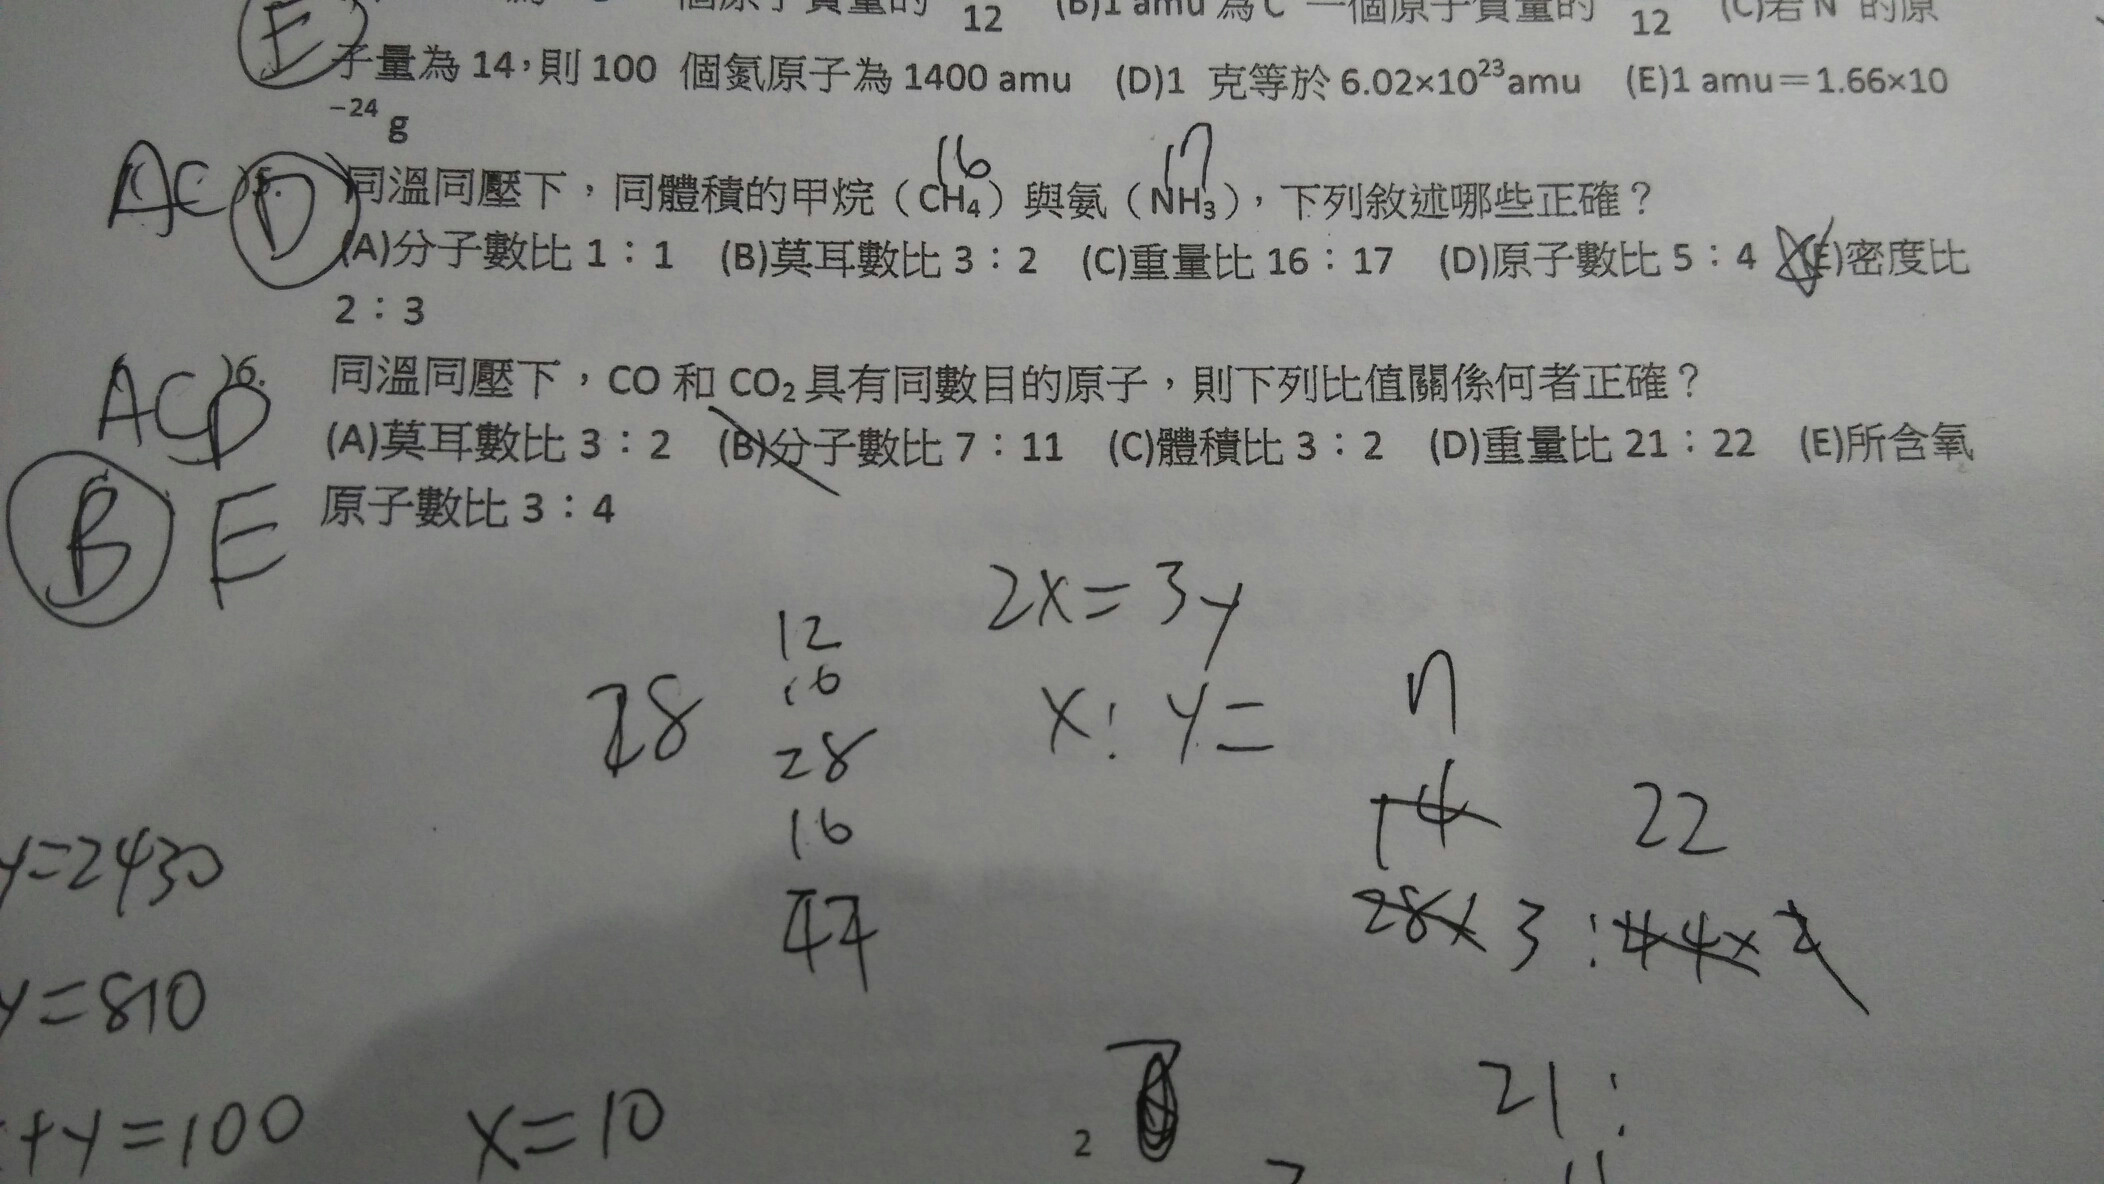 個原子質量的 12 (B)1 amu 為 C 一個原子質量的 12 (C)若 N 的原
E 子量為 14，則 100 個氮原子為 1400 amu (D)1 克等於 6.02×10²³amu (E)1 amu＝1.66×10
⁻²⁴ g
16 17
AC D )5. 同溫同壓下，同體積的甲烷（CH₄）與氨（NH₃），下列敘述哪些正確？
(A)分子數比 1：1 (B)莫耳數比 3：2 (C)重量比 16：17 (D)原子數比 5：4 (E)密度比
2：3
ACD )6. 同溫同壓下，CO 和 CO₂ 具有同數目的原子，則下列比值關係何者正確？
(A)莫耳數比 3：2 (B)分子數比 7：11 (C)體積比 3：2 (D)重量比 21：22 (E)所含氧
B E 原子數比 3：4
2x=3y
12
16
28 28 x:y= n
16 14 22
44 28x3:44x2
y=2430
y=810
+y=100 x=10 21:
2